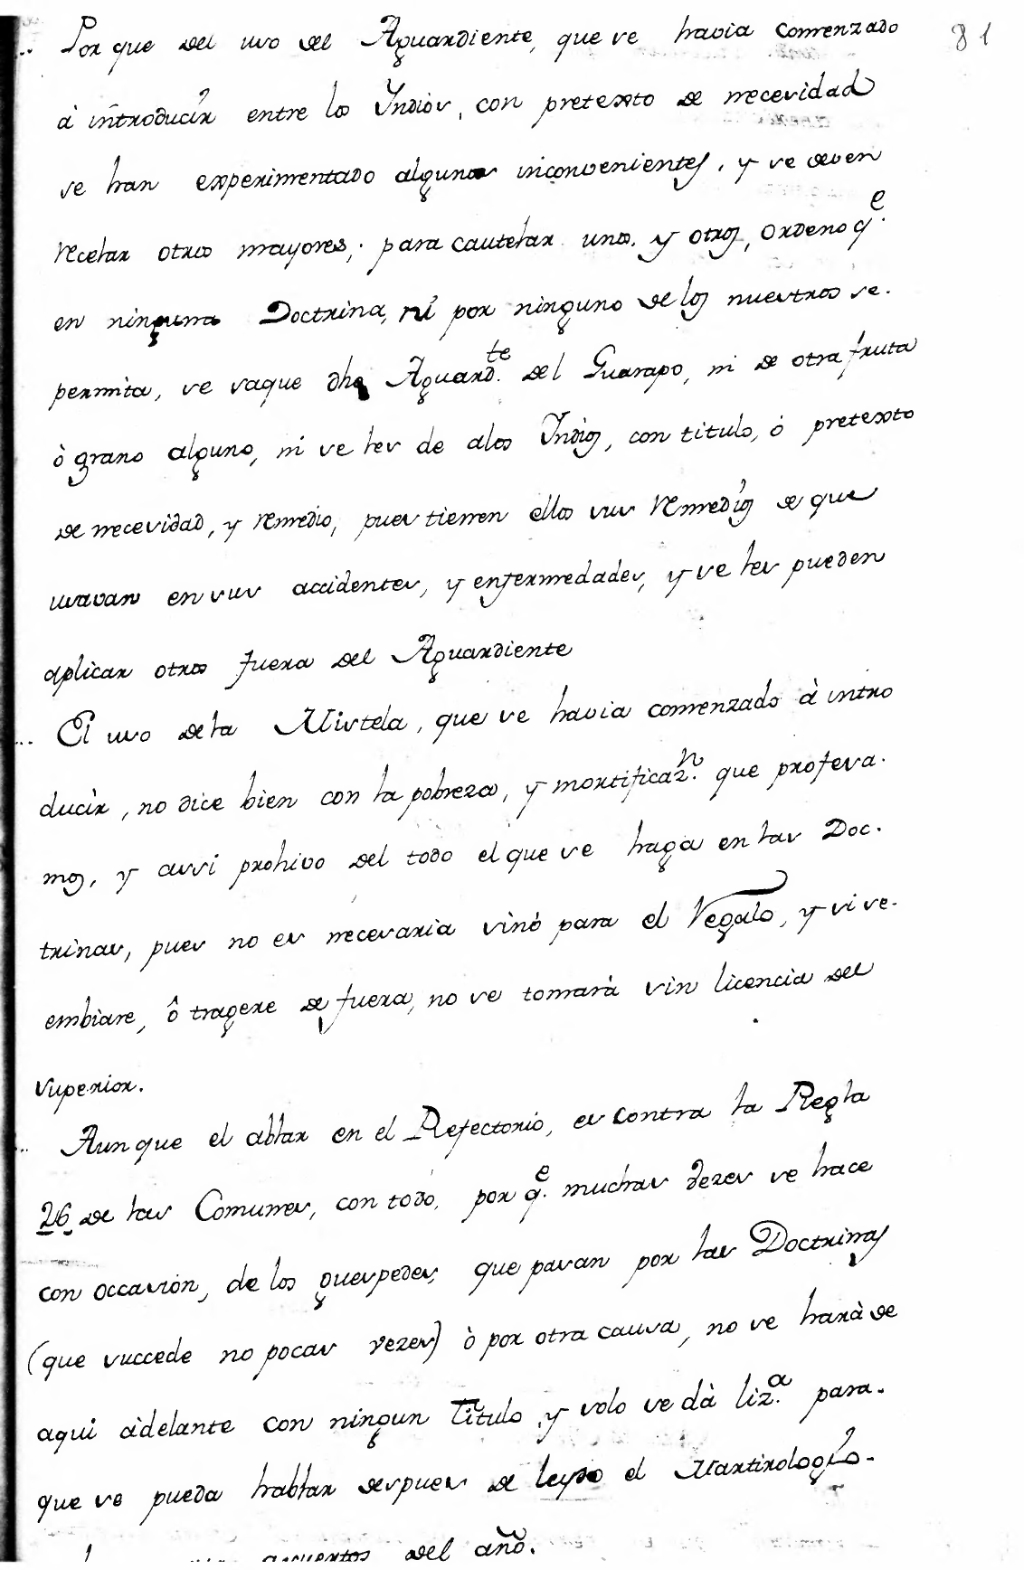 81
Por que del uso del Aguardiente, que se havia comenzado
à introducir entre los Indios, con pretexto de necesidad
se han experimentado algunos inconvenientes, y se deven
recelar otros mayores; para cautelar unos, y otros, ordeno q.e
en ninguna Doctrina, ni por ninguno de los nuestros se
permita, se saque dho Aguard.te del Guarapo, ni de otra fruta
ò grano alguno, ni se les de alos Indios, con titulo, ò pretexto
de necesidad, y remedio, pues tienen ellos sus remedios de que
usavan en sus accidentes, y enfermedades, y se les pueden
aplicar otros fuera del Aguardiente
El uso dela Mistela, que se havia comenzado à intro
ducir, no dice bien con la pobreza, y mortificaz.n que profesa-
mos, y assi prohivo del todo el que se haga en las Doc-
trinas, pues no es necesaria sinò para el Regalo, y si se-
embiare, ô tragere de fuera, no se tomarà sin licencia del
superior.
Aunque el ablar en el Refectorio, es contra la Regla
26 de las Comunes, con todo, por q.e muchas vezes se hace
con occasion, de los guespedes, que pasan por las Doctrinas
(que succede no pocas vezes) ò por otra causa, no se harà de
aqui àdelante con ningun Titulo, y solo se dà liz.a para-
que se pueda hablar despues de leydo el Martirologio-
del año.